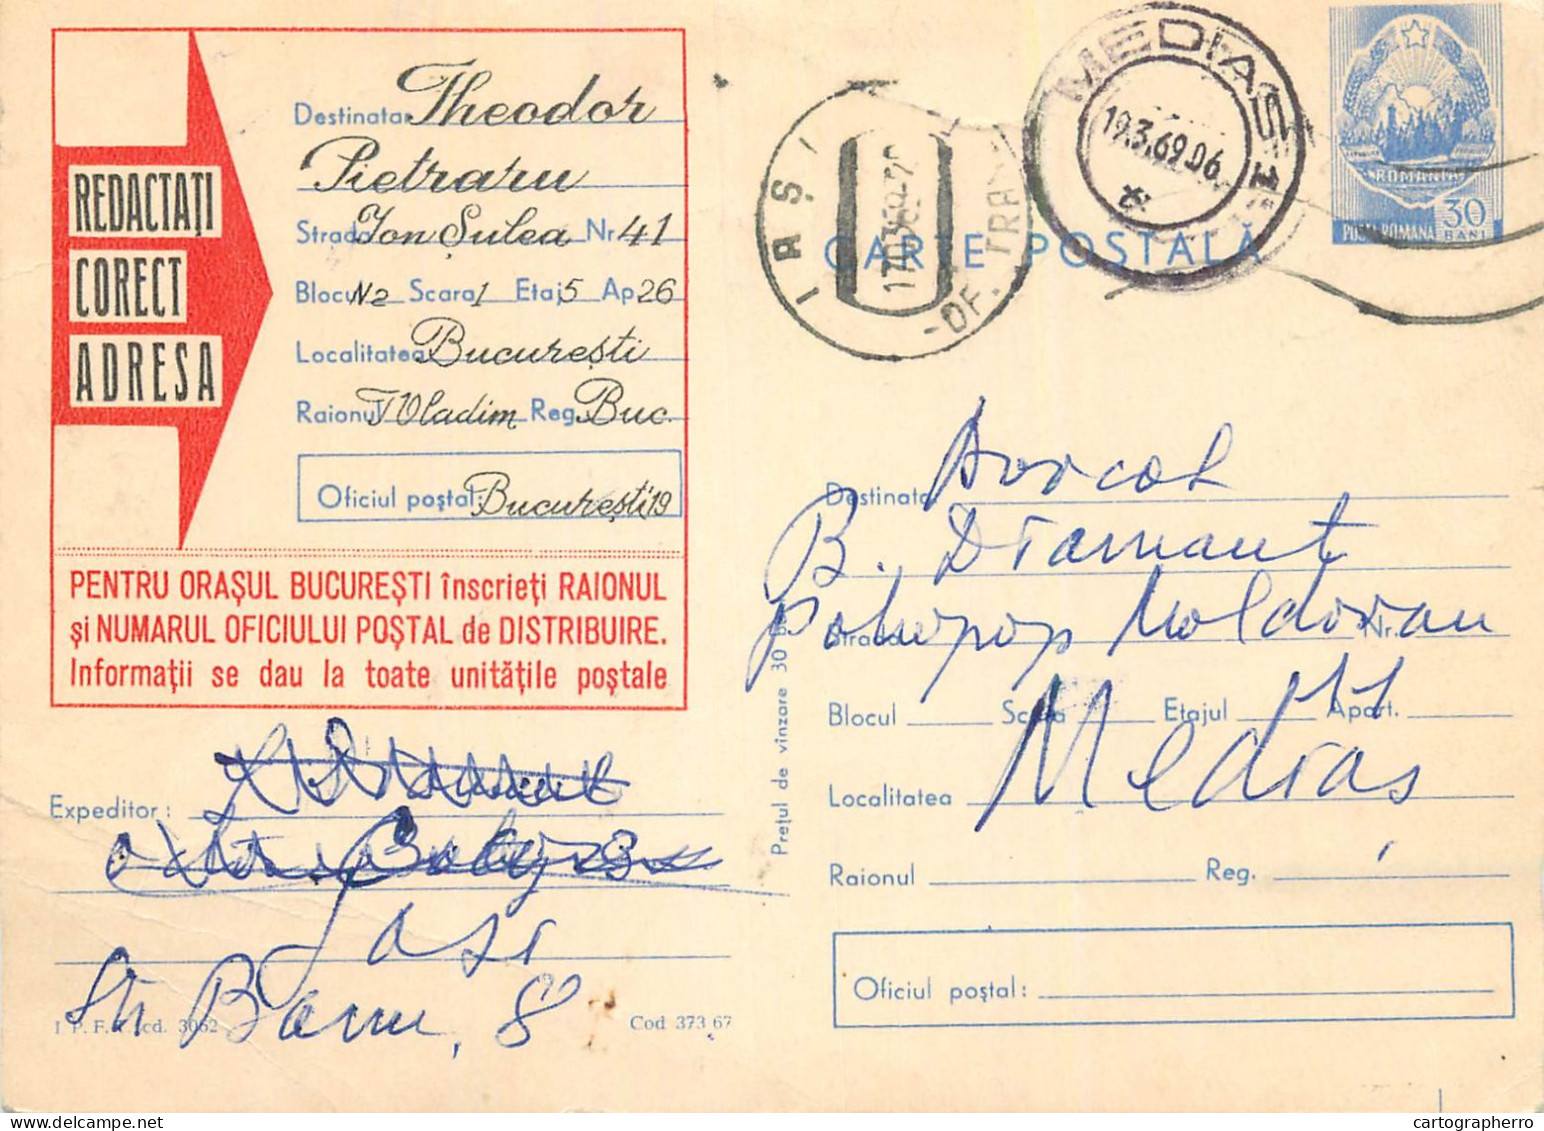 REDACTAȚI
CORECT
ADRESA
Destinatar Theodor
Pietraru
Strada Ion Șulea Nr 41
Blocul N2 Scara 1 Etaj 5 Ap 26
Localitatea București
Raionul T Vladim Reg. Buc.
Oficiul poștal: București 19
PENTRU ORAȘUL BUCUREȘTI înscrieți RAIONUL
și NUMARUL OFICIULUI POȘTAL de DISTRIBUIRE.
Informații se dau la toate unitățile poștale
Expeditor:
Iasi
Str Banu, 8
I. P. F. cd. 3062
Cod 373 67
Prețul de vînzare 30 B
IAȘI
-OF. TRA
MEDIAȘ 1
19.3.69.06
ROMANIA
POSTA ROMANA 30 BANI
CARTE POSTALĂ
Destinatar
B. Diamant
Strada Moldovan Nr.
Blocul Scara Etajul Apart.
11
Localitatea Medias
Raionul Reg.
Oficiul poștal:
cartographerro